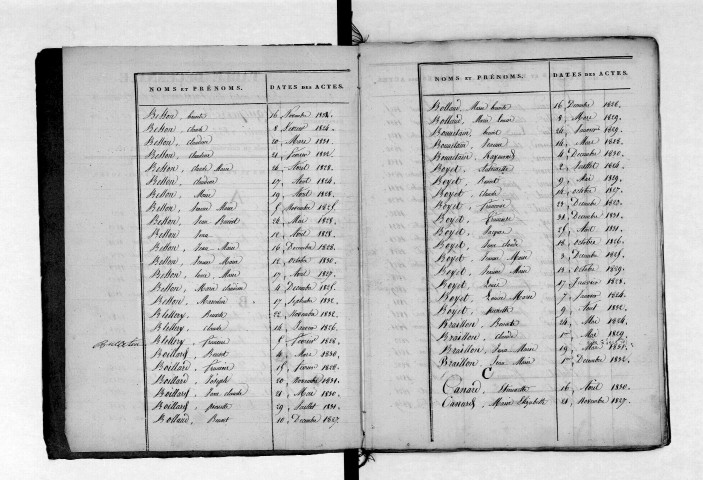 NOMS ET PRÉNOMS. DATES DES ACTES.
Bellon, benoite 16, Novembre 1824.
Bellon, claude 8 février 1826.
Bellon, claudine 20 Mars 1831.
Bellon, claudine 21, février 1832.
Bellon, claude Marie 26 Avril 1828.
Bellon, claudine 17, Avril 1824.
Bellon, Marie 19, Avril 1828.
Bellon, Jeanne Marie Novembre 1825.
Bellon, Jean Benoit 26 Mai 1828.
Bellon, Jean 12 Avril 1828.
Bellon, Jean Marie 16, Decembre 1828.
Bellon, Jeanne Marie 12, Octobre 1830.
Bellon, Marie 17 Avril 1827.
Bellon, Marie claudine 4 Decembre 1825.
Bellon, 17 Septembre 1832.
Blettery, Benoite 22, Novembre 1832.
Blettery, claude 14, 1826.
Blettery, 5 février 1828.
Boillard, Benoit 4, Mars 1830.
Boillard, 15, février 1828.
Boillard, Joseph 20, Novembre 1831.
Boillard, Jean claude 21, Mai 1830.
Boillard, pierrette 29, Juillet 1831.
Bolland, Benoit 10, Decembre 1827.
NOMS ET PRÉNOMS. DATES DES ACTES.
Bolland, Marie benoite 16, Decembre 1828.
Bolland, Marie 8, Mars 1829.
Bourlain, benoit 26, Janvier 1829.
Bourlain, 14, Mars 1828.
Bourlain, Raymond 4, Decembre 1830.
Boyet, Antoinette 2, Juillet 1824.
Boyet, Benoit 9, Mai 1829.
Boyet, claude 14, octobre 1827.
Boyet, 29, Decembre 1823.
Boyet, Françoise 31, Decembre 1831.
Boyet, Jacques 25, Août 1831.
Boyet, Jean claude 18, octobre 1826.
Boyet, Jeanne Marie 3, Decembre 1825.
Boyet, Jeanne Marie 13, octobre 1829.
Boyet, Louise 17 Janvier 1828.
Boyet, Louise Marie 7, Janvier 1824.
Boyet, pierrette 9, Août 1832.
Braillon, Benoite 24, Mai 1824.
Braillon, claude 1er Mai 1829.
Braillon, Jean Marie 19, Mai 1831.
Braillon, Jean Marie 1er Decembre 1832.
C
Canard, pierrette 16, Avril 1830.
Canard, Marie Elizabeth 21, Novembre 1827.